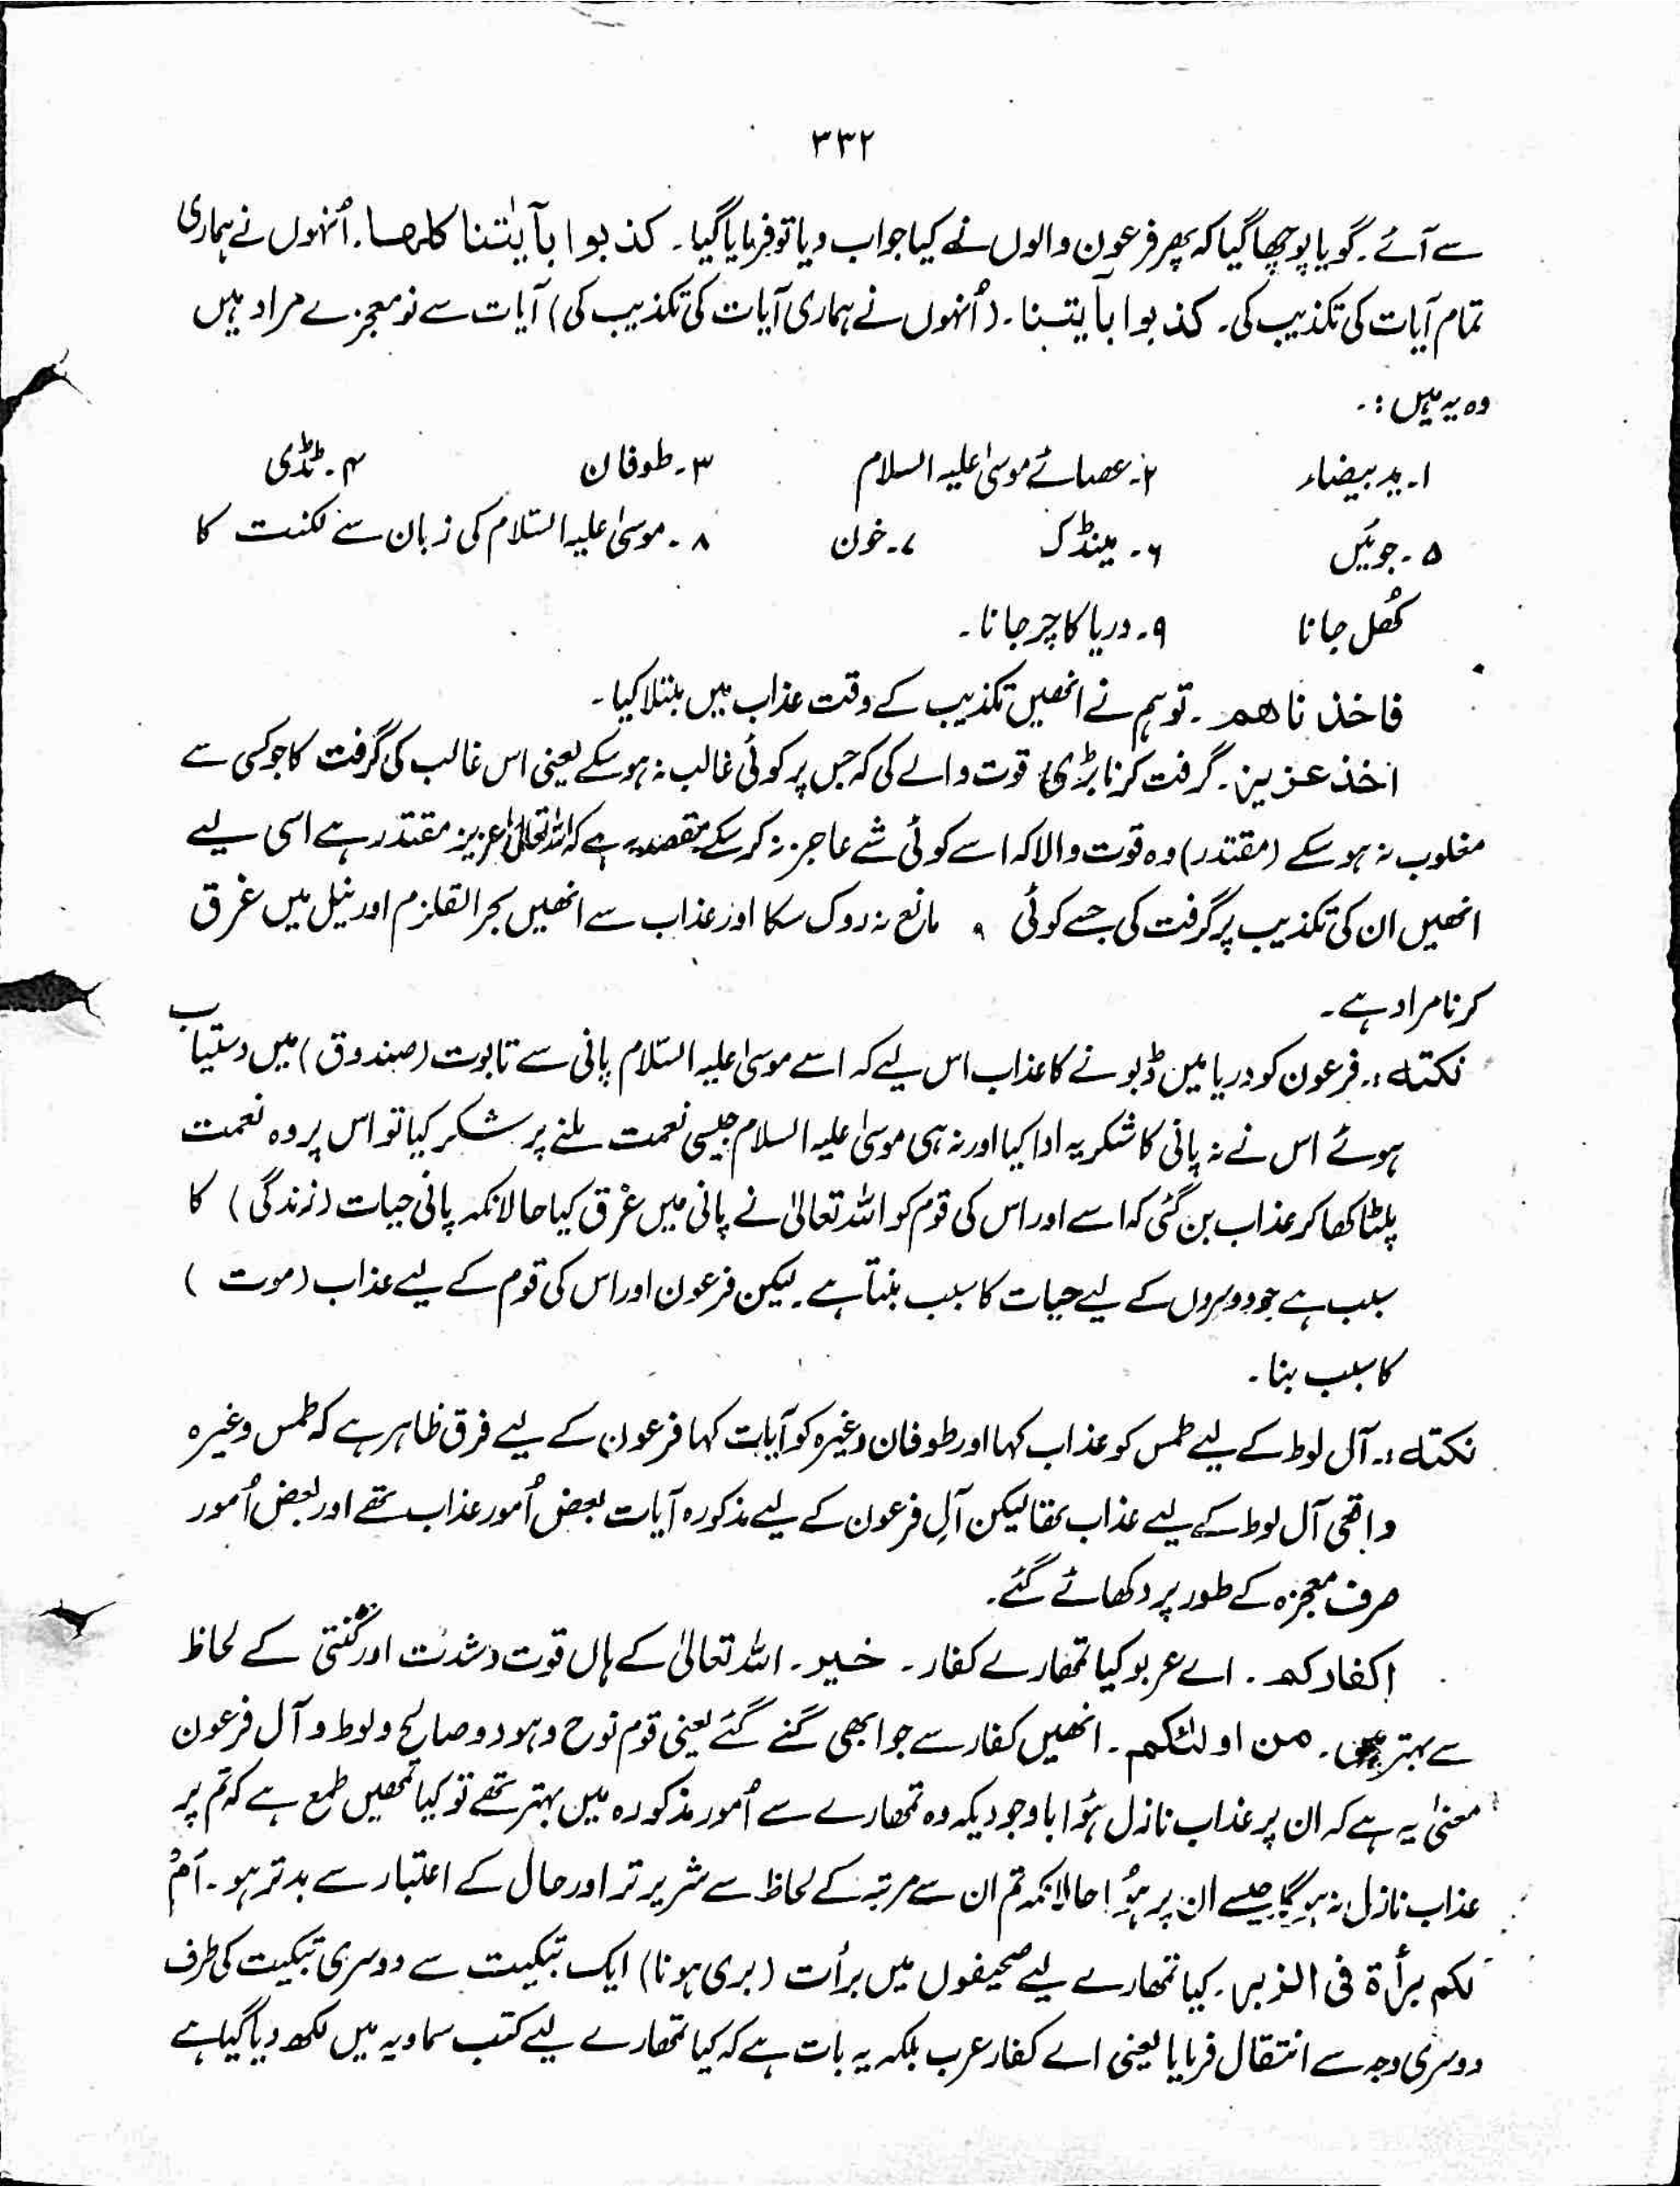 ۳۳۲
سے آئے۔ گویا پوچھا گیا کہ پھر فرعون والوں نے کیا جواب دیا تو فرمایا گیا۔ کذبوا بآیٰتنا کلھا۔ اُنھوں نے ہماری
تمام آیات کی تکذیب کی۔ کذبوا بآیتنا۔ (اُنھوں نے ہماری آیات کی تکذیب کی) آیات سے نو معجزے مراد ہیں
وہ یہ ہیں :۔
۱۔ ید بیضاء ۲۔ عصائے موسیٰ علیہ السلام ۳۔ طوفان ۴۔ ٹڈی
۵۔ جوئیں ۶۔ مینڈک ۷۔ خون ۸۔ موسیٰ علیہ السّلام کی زبان سے لکنت کا
کُھل جانا ۹۔ دریا کا چر جانا۔
فاخذ ناھم۔ تو ہم نے انھیں تکذیب کے وقت عذاب میں مبتلا کیا۔
اخذ عزیز۔ گرفت کرنا بڑی قوت والے کی کہ جس پر کوئی غالب نہ ہو سکے یعنی اس غالب کی گرفت کا جو کسی سے
مغلوب نہ ہو سکے (مقتدر) وہ قوت والا کہ اسے کوئی شے عاجز نہ کر سکے مقصد یہ ہے کہ اللہ تعالیٰ عزیز مقتدر ہے اسی لیے
انھیں ان کی تکذیب پر گرفت کی جسے کوئی مانع نہ روک سکا اور عذاب سے انھیں بحر القلزم اور نیل میں غرق
کرنا مراد ہے۔
نکتہ :۔ فرعون کو دریا میں ڈبونے کا عذاب اس لیے کہ اسے موسیٰ علیہ السّلام پانی سے تابوت (صندوق) میں دستیاب
ہوئے اس نے نہ پانی کا شکریہ ادا کیا اور نہ ہی موسیٰ علیہ السلام جیسی نعمت ملنے پر شکر کیا تو اس پر وہ نعمت
پلٹا کھا کر عذاب بن گئی کہ اسے اور اس کی قوم کو اللہ تعالیٰ نے پانی میں غرق کیا حالانکہ پانی حیات (زندگی) کا
سبب ہے جو دوسروں کے لیے حیات کا سبب بنتا ہے۔ لیکن فرعون اور اس کی قوم کے لیے عذاب (موت)
کا سبب بنا۔
نکتہ :۔ آل لوط کے لیے طمس کو عذاب کہا اور طوفان وغیرہ کو آیات کہا فرعون کے لیے فرق ظاہر ہے کہ طمس وغیرہ
واقعی آل لوط کے لیے عذاب تھا لیکن آلِ فرعون کے لیے مذکورہ آیات بعض اُمور عذاب تھے اور بعض اُمور
صرف معجزہ کے طور پر دکھائے گئے۔
اکفارکم۔ اے عربو کیا تمھارے کفار۔ خیر۔ اللہ تعالیٰ کے ہاں قوت و شدت اور گنتی کے لحاظ
سے بہتر ہیں۔ من اولئکم۔ انھیں کفار سے جو ابھی گنے گئے یعنی قوم نوح و ہود و صالح و لوط و آل فرعون
معنیٰ یہ ہے کہ ان پر عذاب نازل ہُوا باوجودیکہ وہ تمھارے سے اُمور مذکورہ میں بہتر تھے تو کیا تمھیں طمع ہے کہ تم پر
عذاب نازل نہ ہو گا جیسے ان پر ہُوا حالانکہ تم ان سے مرتبہ کے لحاظ سے شریر تر اور حال کے اعتبار سے بدتر ہو۔ اَمْ
لکم برأۃ فی الزبر۔ کیا تمھارے لیے صحیفوں میں برأت (بری ہونا) ایک تبکیت سے دوسری تبکیت کی طرف
دوسری وجہ سے انتقال فرمایا یعنی اے کفار عرب بلکہ یہ بات ہے کہ کیا تمھارے لیے کتب سماویہ میں لکھ دیا گیا ہے